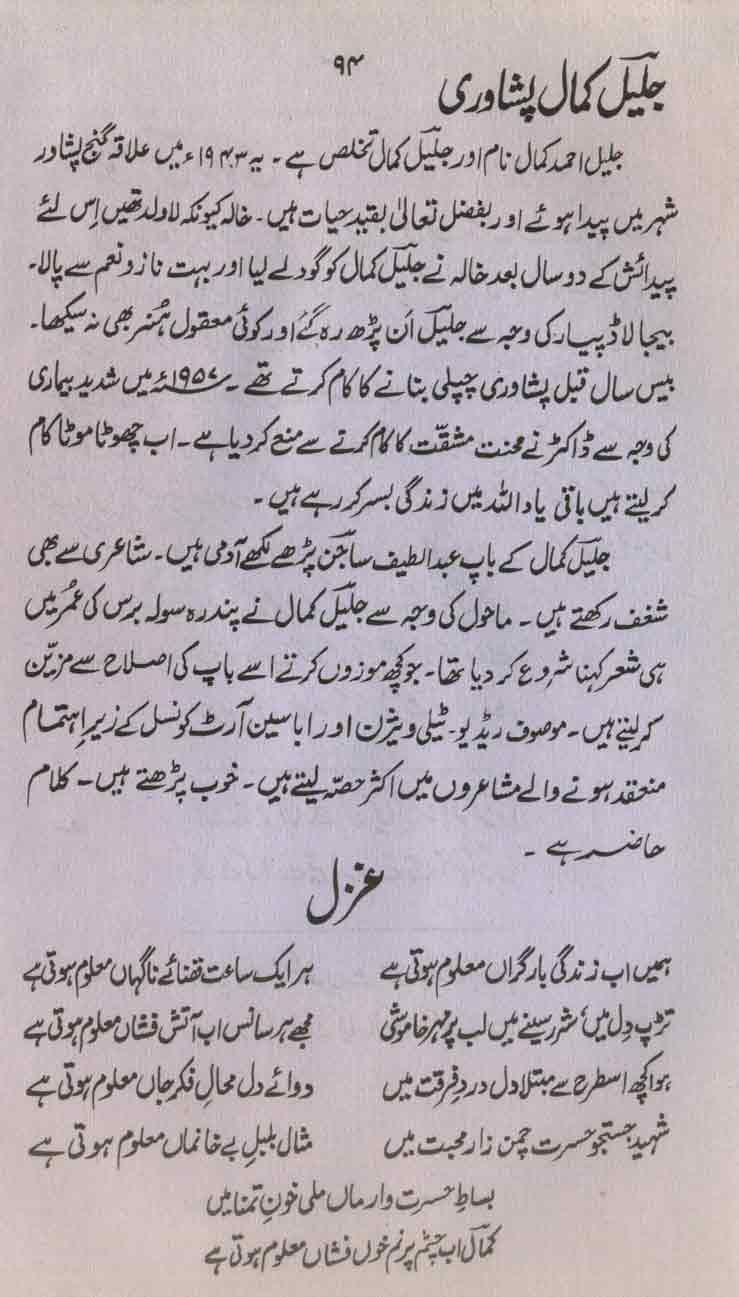 ۹۴
جلیل کمال پشاوری
جلیل احمد کمال نام اور جلیل کمال تخلص ہے۔ یہ ۱۹۴۳ء میں علاقہ گنج پشاور
شہر میں پیدا ہوئے اور بفضل تعالیٰ بقید حیات ہیں۔ خالہ کیونکہ لاولد تھیں اِس لئے
پیدائش کے دو سال بعد خالہ نے جلیل کمال کو گود لے لیا اور بہت ناز و نعم سے پالا۔
بیجا لاڈ پیار کی وجہ سے جلیل اَن پڑھ رہ گئے اور کوئی معقول ہُنر بھی نہ سیکھا۔
بیس سال قبل پشاوری چپلی بنانے کا کام کرتے تھے۔ ۱۹۵۷ء میں شدید بیماری
کی وجہ سے ڈاکٹر نے محنت مشقّت کا کام کرنے سے منع کر دیا ہے۔ اب چھوٹا موٹا کام
کر لیتے ہیں باقی یاد اللہ میں زندگی بسر کر رہے ہیں۔
جلیل کمال کے باپ عبد اللطیف ساجن پڑھے لکھے آدمی ہیں۔ شاعری سے بھی
شغف رکھتے ہیں۔ ماحول کی وجہ سے جلیل کمال نے پندرہ سولہ برس کی عمُر میں
ہی شعر کہنا شروع کر دیا تھا۔ جو کچھ موزوں کرتے اسے باپ کی اصلاح سے مزیّن
کر لیتے ہیں۔ موصوف ریڈیو۔ ٹیلی ویژن اور اباسین آرٹ کونسل کے زیرِ اہتمام
منعقد ہونے والے مشاعروں میں اکثر حصّہ لیتے ہیں۔ خوب پڑھتے ہیں۔ کلام
حاضر ہے۔
غزل
ہمیں اب زندگی بار گراں معلوم ہوتی ہے ہر ایک ساعت قضائے ناگہاں معلوم ہوتی ہے
تڑپ دِل میں، شرر سینے میں لب پر مہر خاموشی مجھے ہر سانس اب آتش فشاں معلوم ہوتی ہے
ہوا کچھ اسطرح سے مبتلا دل دردِ فرقت میں دوائے دل محالِ فکرِ جاں معلوم ہوتی ہے
شہید جستجو حسرت چمن زار محبت میں مثال بلبلِ بے خانماں معلوم ہوتی ہے
بساطِ حسرت و ارماں ملی خونِ تمنا میں
کمال اب چشم پرنم خوں فشاں معلوم ہوتی ہے